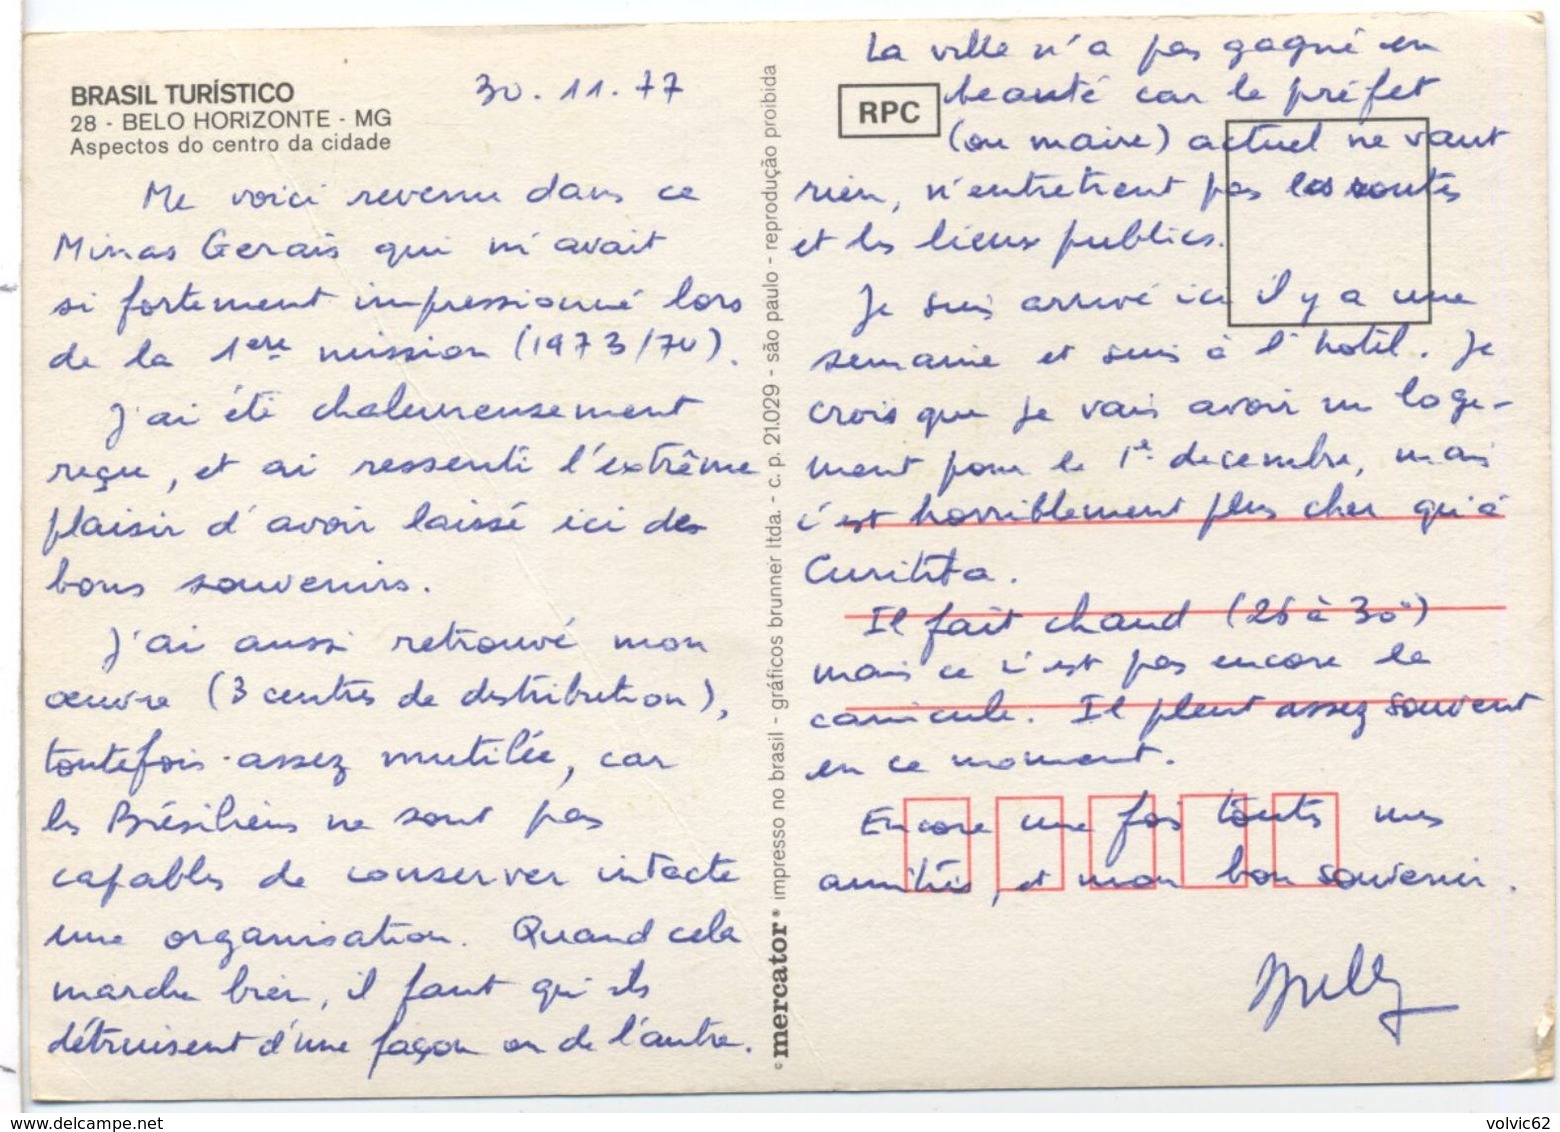 BRASIL TURÍSTICO
28 - BELO HORIZONTE - MG
Aspectos do centro da cidade
30.11.77
Me voici revenu dans ce
Minas Gerais qui m'avait
si fortement impressionné lors
de la 1ère mission (1973/74).
J'ai été chaleureusement
reçu, et ai ressenti l'extrême
plaisir d'avoir laissé ici des
bons souvenirs.
J'ai aussi retrouvé mon
œuvre (3 centres de distribution),
toutefois assez mutilée, car
les Brésiliens ne sont pas
capables de conserver intacte
une organisation. Quand cela
marche bien, il faut qu'ils
détruisent d'une façon ou de l'autre.
© mercator ® impresso no brasil - gráficos brunner ltda. - c. p. 21.029 - são paulo - reprodução proibida
RPC
La ville n'a pas gagné en
beauté car le préfet
(ou maire) actuel ne vaut
rien, n'entretient pas les routes
et les lieux publics.
Je suis arrivé ici il y a une
semaine et suis à l'hotel. Je
crois que je vais avoir un loge-
ment pour le 1er decembre, mais
c'est horriblement plus cher qu'à
Curitiba.
Il fait chaud (25 à 30°)
mais ce n'est pas encore la
canicule. Il pleut assez souvent
en ce moment.
Encore une fois toutes mes
amitiés, et mon bon souvenir.
volvic62